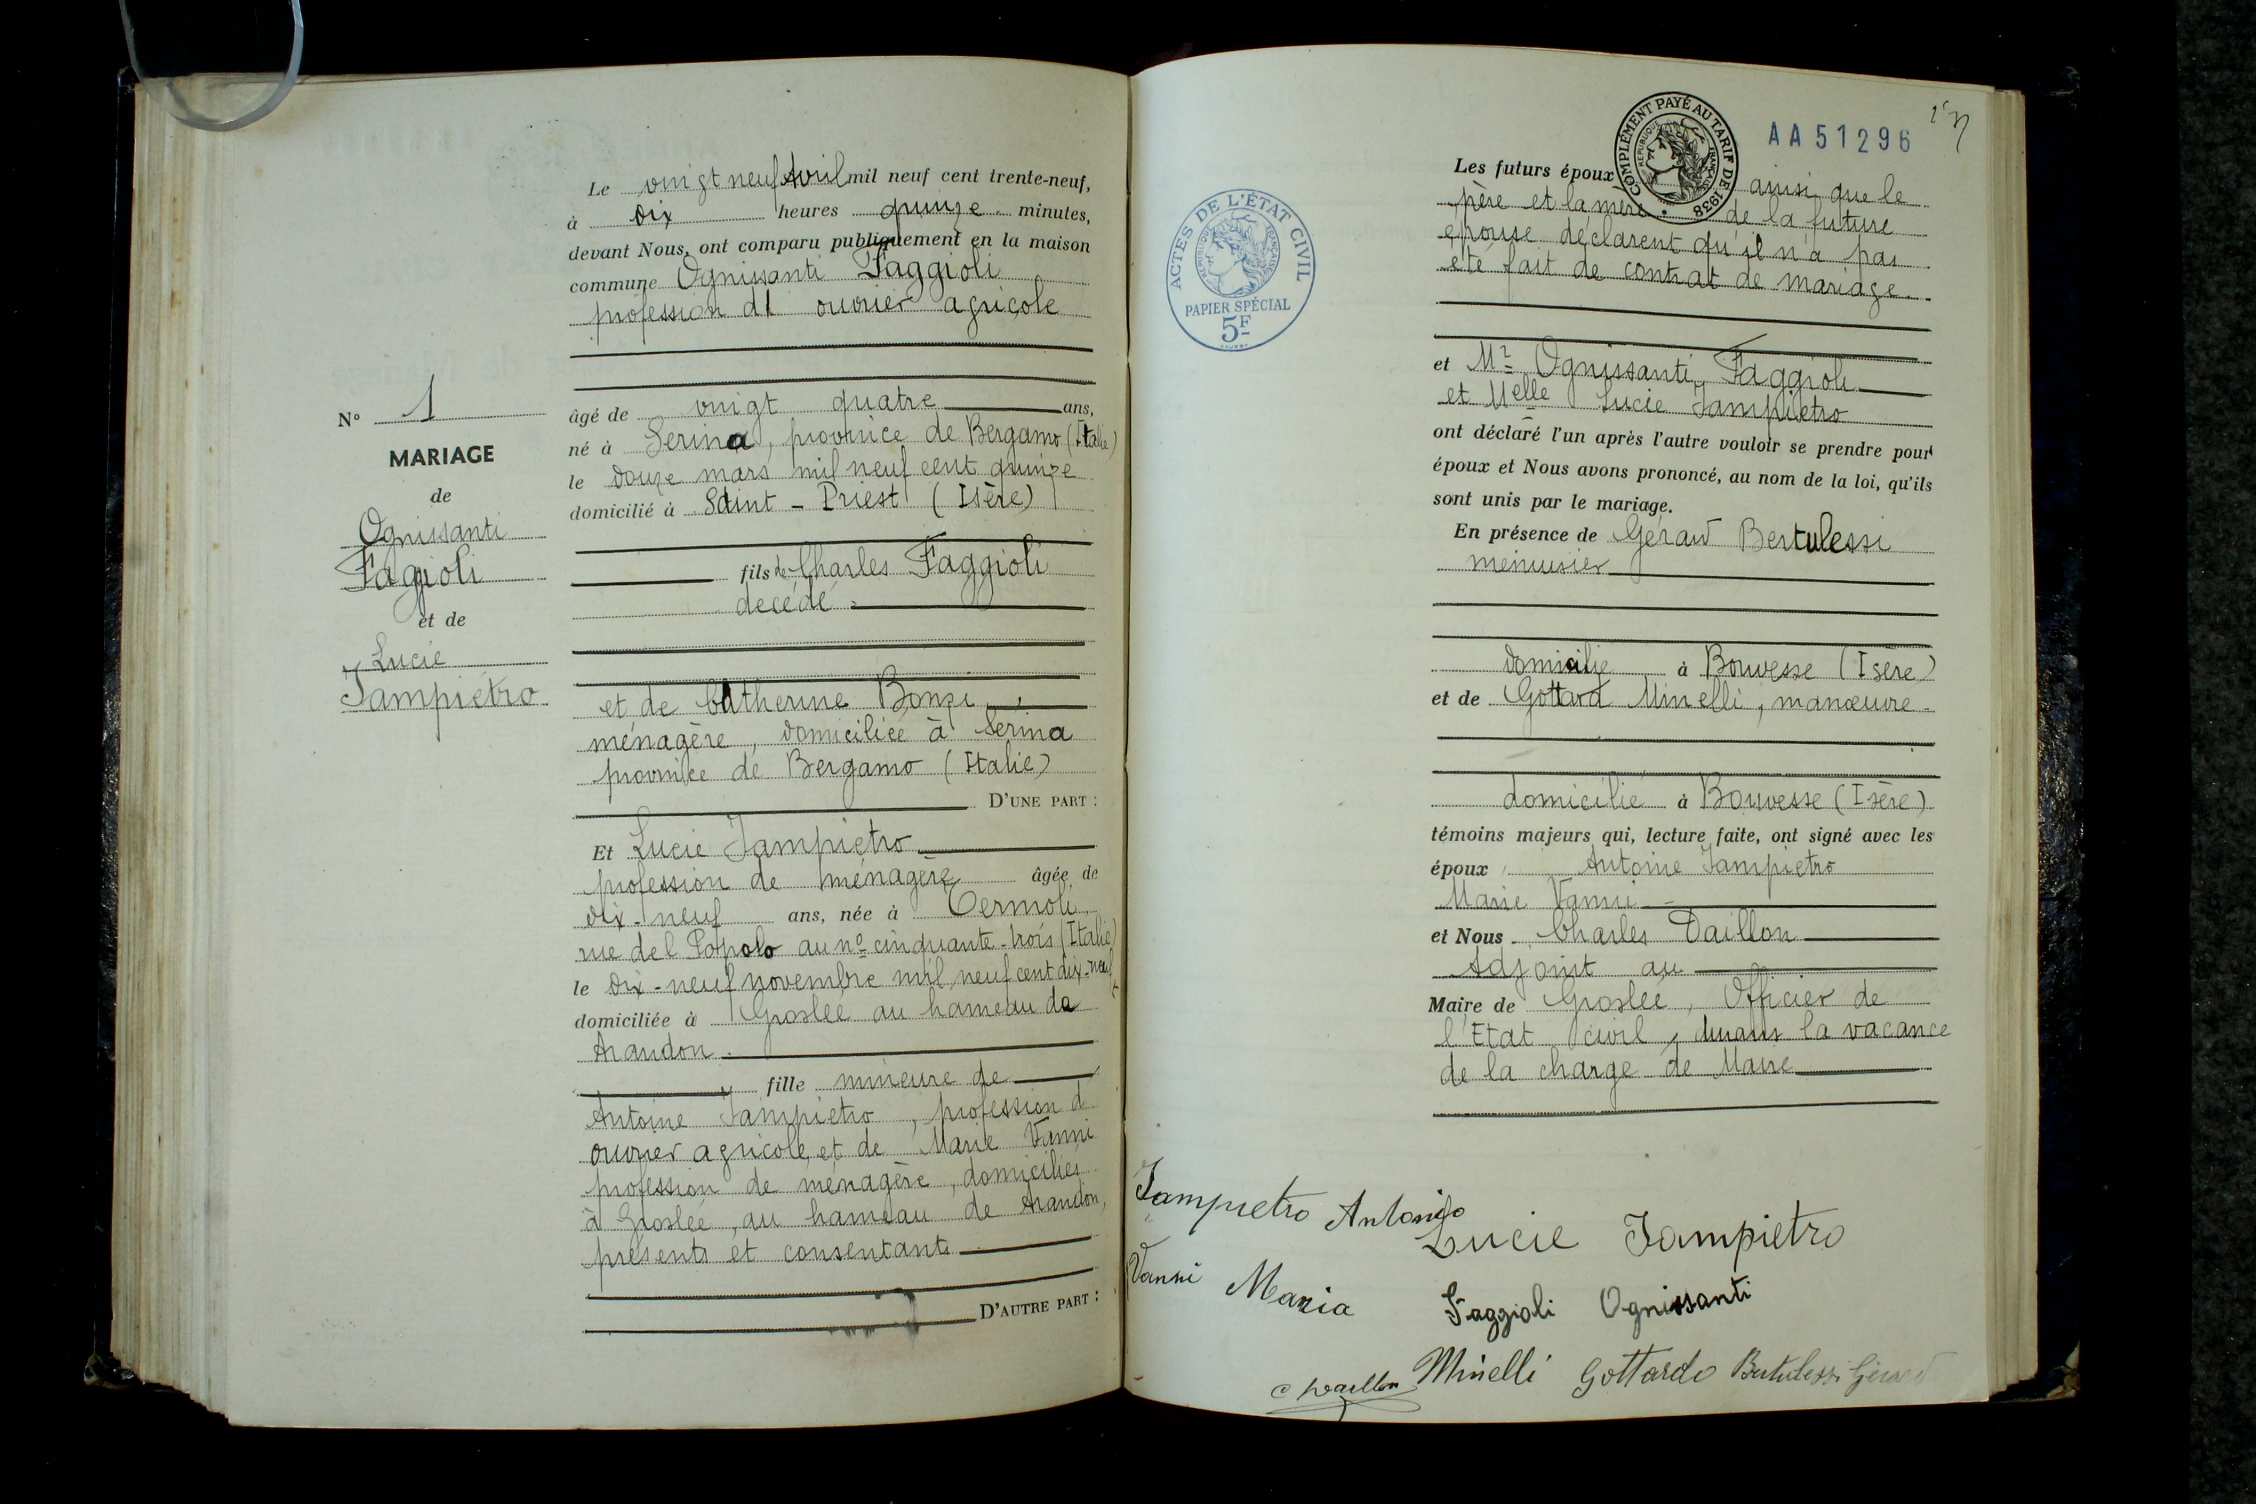 Le vingt neuf Avril mil neuf cent trente-neuf,
à dix heures quinze minutes,
devant Nous, ont comparu publiquement en la maison
commune Ognissanti Faggioli
profession d' ouvrier agricole
N° 1
MARIAGE
de
Ognissanti
Faggioli
et de
Lucie
Jampiétro
âgé de vingt quatre ans,
né à Serina, province de Bergamo (Italie)
le douze mars mil neuf cent quinze
domicilié à Saint - Priest (Isère)
fils de Charles Faggioli
décédé
et de Catherine Bonzi,
ménagère, domiciliée à Sérina
province de Bergamo (Italie)
D'UNE PART :
Et Lucie Jampietro
profession de ménagère âgée de
dix-neuf ans, née à Termoli
rue del Popolo au n° cinquante-trois (Italie)
le dix-neuf novembre mil neuf cent dix-neuf
domiciliée à Groslée au hameau de
Arandon.
fille mineure de
Antoine Jampietro, profession d
ouvrier agricole et de Marie Vanni
profession de ménagère, domiciliés
à Groslée, au hameau de Arandon,
présents et consentants
D'AUTRE PART :
COMPLÉMENT PAYÉ AU TARIF DE 1938
RÉPUBLIQUE FRANÇAISE
AA51296
ACTES DE L'ÉTAT CIVIL
RÉPUBLIQUE FRANÇAISE
PAPIER SPÉCIAL
5F
Les futurs époux ainsi que le
père et la mère de la future
épouse déclarent qu'il n'a pas
été fait de contrat de mariage.
et Mr Ognissanti Faggioli
et Melle Lucie Jampietro
ont déclaré l'un après l'autre vouloir se prendre pour
époux et Nous avons prononcé, au nom de la loi, qu'ils
sont unis par le mariage.
En présence de Gérard Bertulessi
menuisier
domicilié à Bouvesse (Isère)
et de Gottard Minelli, manœuvre
domicilié à Bouvesse (Isère)
témoins majeurs qui, lecture faite, ont signé avec les
époux, Antoine Jampietro
Marie Vanni
et Nous Charles Daillon
Adjoint au
Maire de Groslée, Officier de
l'Etat civil, durant la vacance
de la charge de Maire
Jampietro Antonio
Lucie Jampietro
Vanni Maria
Faggioli Ognissanti
C Daillon
Minelli Gottardo Bertulessi Gérard